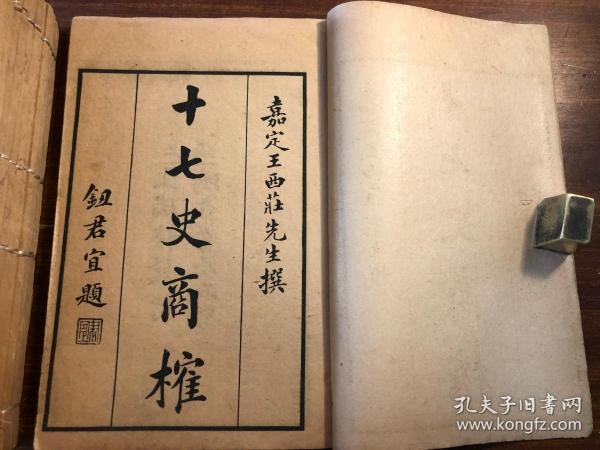 嘉定王西莊先生撰
十七史商榷
鈕君宜題
孔夫子旧书网
www.kongfz.com